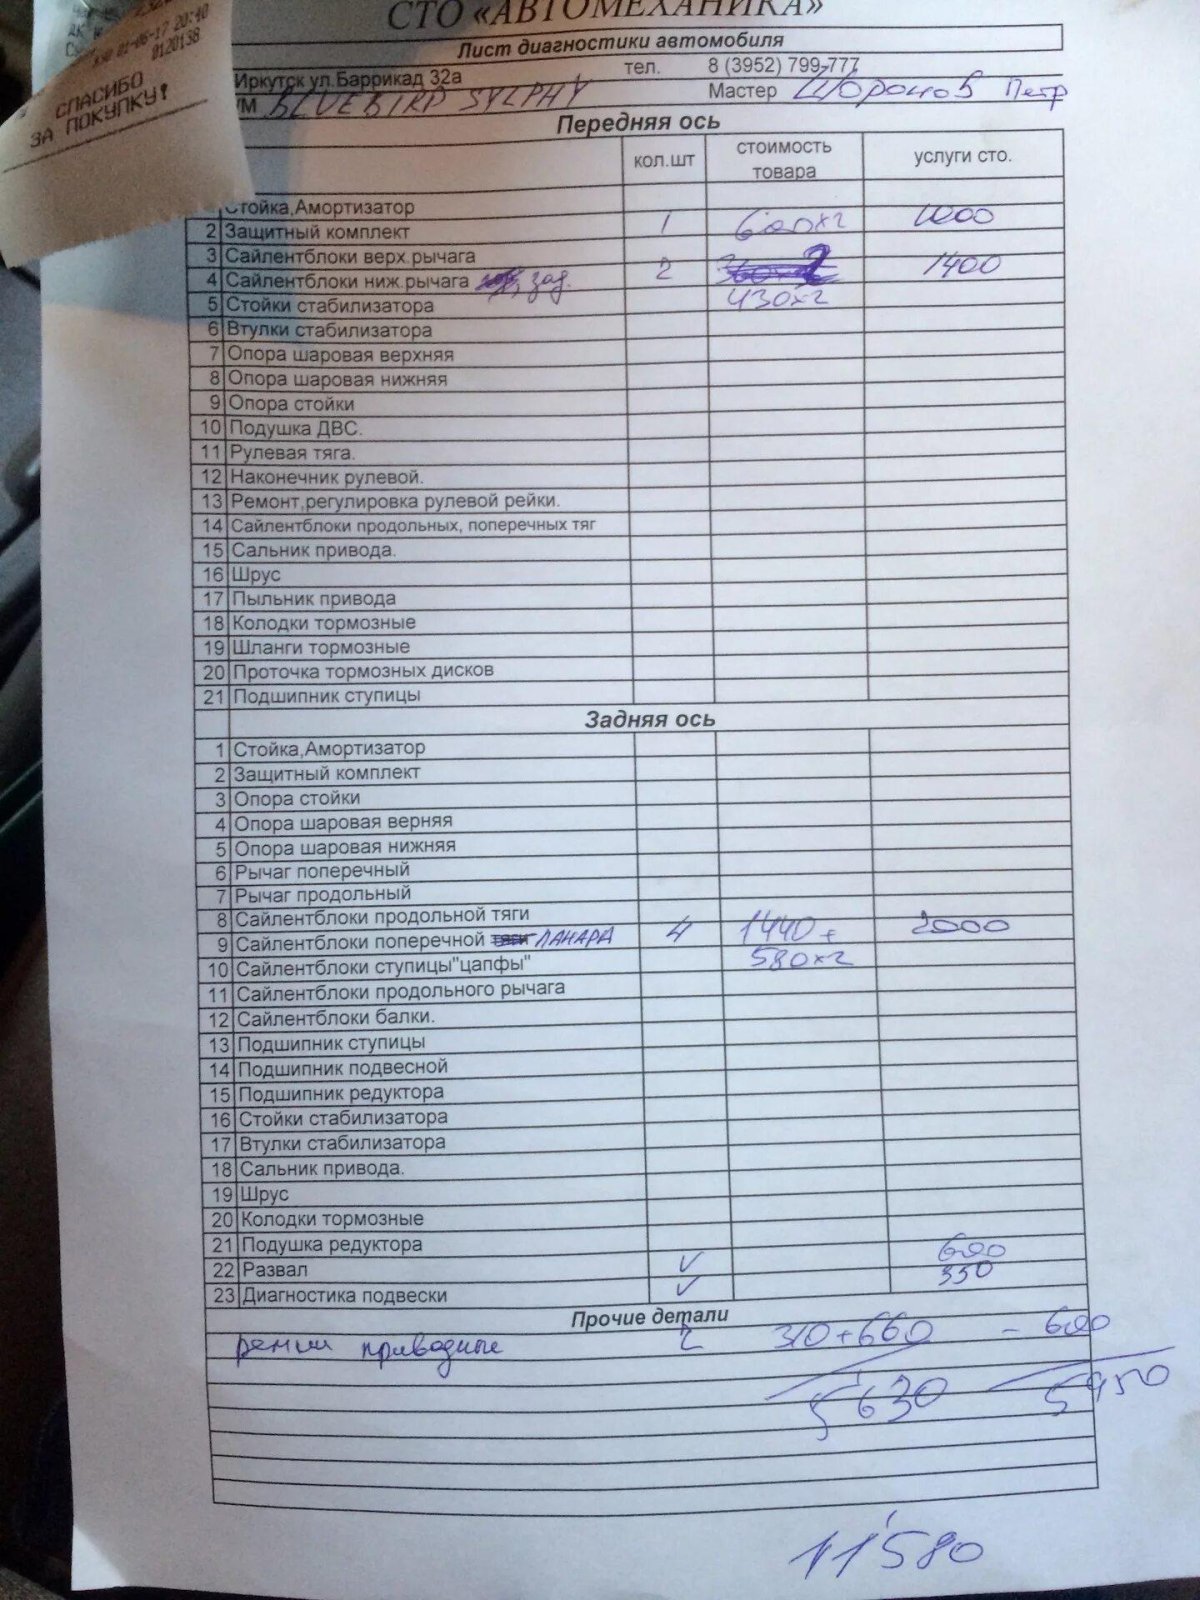 СТО «АВТОМЕХАНИКА»
Лист диагностики автомобиля
01-06-17 20:40
0120138
СПАСИБО
ЗА ПОКУПКУ!
Иркутск ул.Баррикад 32а тел. 8 (3952) 799-777
/М BLUEBIRD SYLPHY Мастер Петр
Передняя ось
кол.шт стоимость товара услуги сто.
Стойка,Амортизатор
2 Защитный комплект 1 600x2 1000
3 Сайлентблоки верх.рычага
4 Сайлентблоки ниж.рычага зад. 2 1400
5 Стойки стабилизатора 430x2
6 Втулки стабилизатора
7 Опора шаровая верхняя
8 Опора шаровая нижняя
9 Опора стойки
10 Подушка ДВС.
11 Рулевая тяга.
12 Наконечник рулевой.
13 Ремонт,регулировка рулевой рейки.
14 Сайлентблоки продольных, поперечных тяг
15 Сальник привода.
16 Шрус
17 Пыльник привода
18 Колодки тормозные
19 Шланги тормозные
20 Проточка тормозных дисков
21 Подшипник ступицы
Задняя ось
1 Стойка,Амортизатор
2 Защитный комплект
3 Опора стойки
4 Опора шаровая верняя
5 Опора шаровая нижняя
6 Рычаг поперечный
7 Рычаг продольный
8 Сайлентблоки продольной тяги
9 Сайлентблоки поперечной тяги ПАНАРА 4 1440+ 2000
10 Сайлентблоки ступицы"цапфы" 580x2
11 Сайлентблоки продольного рычага
12 Сайлентблоки балки.
13 Подшипник ступицы
14 Подшипник подвесной
15 Подшипник редуктора
16 Стойки стабилизатора
17 Втулки стабилизатора
18 Сальник привода.
19 Шрус
20 Колодки тормозные
21 Подушка редуктора
22 Развал ✓ 600
23 Диагностика подвески ✓ 350
Прочие детали
ремни приводные 2 310+660 - 600
5630 5950
11'580